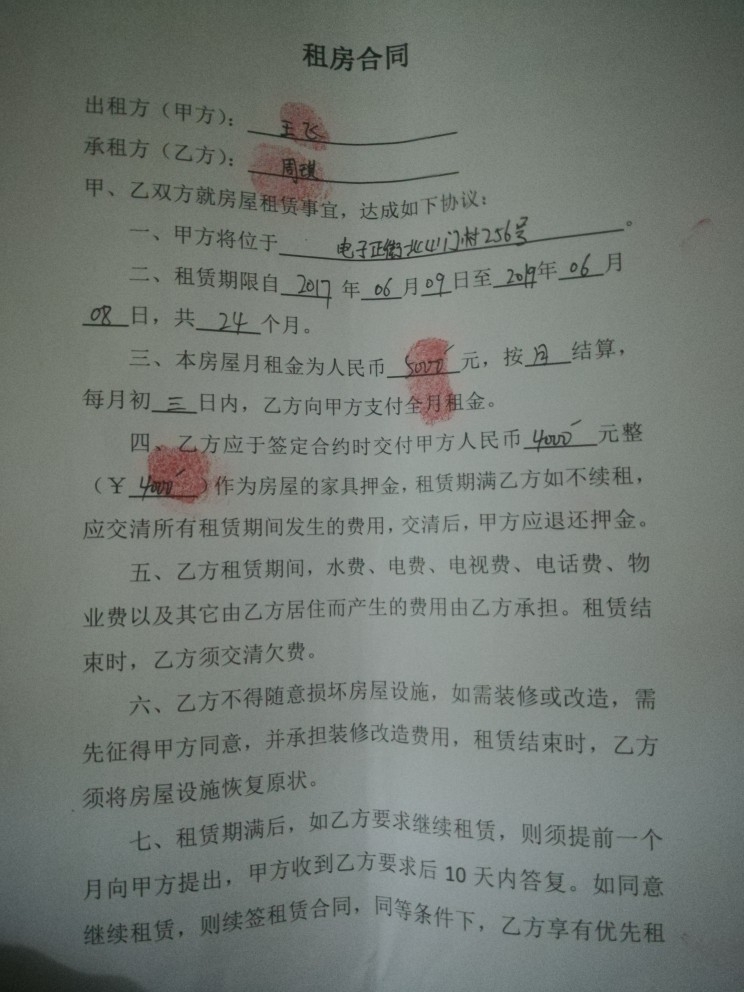 租房合同
出租方（甲方）：王飞
承租方（乙方）：周琪
甲、乙双方就房屋租赁事宜，达成如下协议：
一、甲方将位于 电子正街北山门村256号。
二、租赁期限自 2017 年 06 月 09 日至 2019 年 06 月
08 日，共 24 个月。
三、本房屋月租金为人民币 5000 元，按 月 结算，
每月初 三 日内，乙方向甲方支付全月租金。
四、乙方应于签定合约时交付甲方人民币 4000 元整
（￥ 4000 ）作为房屋的家具押金，租赁期满乙方如不续租，
应交清所有租赁期间发生的费用，交清后，甲方应退还押金。
五、乙方租赁期间，水费、电费、电视费、电话费、物
业费以及其它由乙方居住而产生的费用由乙方承担。租赁结
束时，乙方须交清欠费。
六、乙方不得随意损坏房屋设施，如需装修或改造，需
先征得甲方同意，并承担装修改造费用，租赁结束时，乙方
须将房屋设施恢复原状。
七、租赁期满后，如乙方要求继续租赁，则须提前一个
月向甲方提出，甲方收到乙方要求后 10 天内答复。如同意
继续租赁，则续签租赁合同，同等条件下，乙方享有优先租